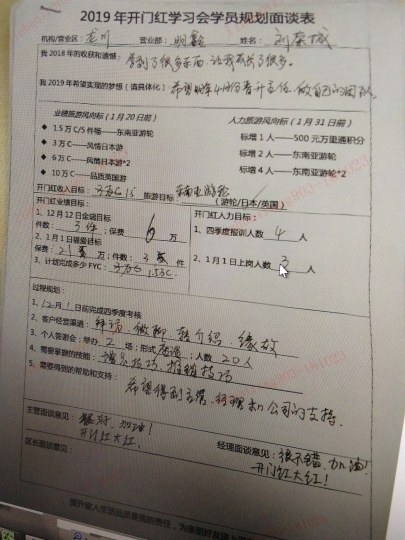 2019年开门红学习会学员规划面谈表
机构/营业区：龙川 营业部： 姓名：
我2018年的收获和遗憾：学到了很多东西，让我成长了很多。
我2019年希望实现的梦想（请具体化）希望明年4月份晋升主任，做自己的团队。
业绩旅游风向标（1月20日前） 人力旅游风向标（1月31日前）
◆ 1.5万C/5件幅——东南亚游轮 标增1人——500元万里通积分
◆ 3万C——风情日本游 标增2人——东南亚游轮
◆ 6万C——风情日本游*2 标增4人——东南亚游轮*2
◆ 10万C——品质英国游
开门红收入目标：3万C 旅游目标：东南亚游轮（游轮/日本/英国）
开门红业绩目标： 开门红人力目标：
1、12月12日金瑞目标
件数：3件；保费 6 万 1、四季度报训人数 4 人
2、1月1日启爱目标
保费：2 万；件数：3 件 2、1月1日上岗人数 3 人
3、计划完成多少FYC：3万C
过程规划：
1、12月1日前完成四季度考核
2、客户经营渠道：拜访、微聊、转介绍、缘故
3、个人答谢会：举办 2 场；形式 座谈；人数 20人
4、需要掌握的技能：增员技巧、推销技巧
5、需要得到的帮助和支持：
希望得到主管、经理和公司的支持。
主管面谈意见：很好，加油！ 经理面谈意见：很不错，加油！
开门红大红！ 开门红大红！
区长面谈意见：